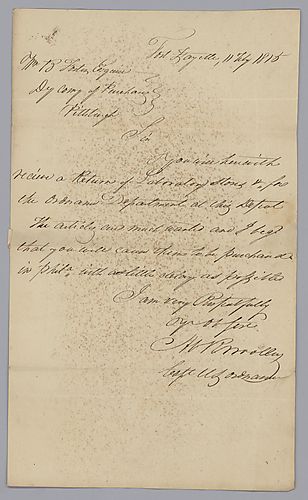 Fort Fayette, 11 July 1815
Wm B Foster Esquire
Dy Comy of Purchases
Pittsburgh
Sir
You will herewith
recieve a Return of Laboratory Stores &c for
the Ordnance Department at this Depot
The articles are much wanted and I beg
that you will cause them to be purchased
in Phila. with as little delay as possible
I am very Respectfully
Your Ob Serv.
Capt US Ordnance